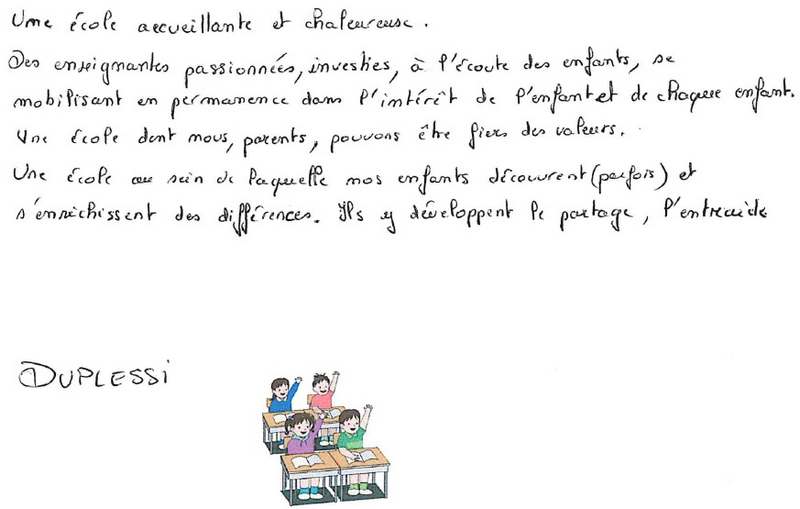 Une école accueillante et chaleureuse.
Des enseignantes passionnées, investies, à l'écoute des enfants, se
mobilisant en permanence dans l'intérêt de l'enfant et de chaque enfant.
Une école dont nous, parents, pouvons être fiers des valeurs.
Une école au sein de laquelle nos enfants découvrent (parfois) et
s'enrichissent des différences. Ils y développent le partage, l'entraide
DUPLESSI